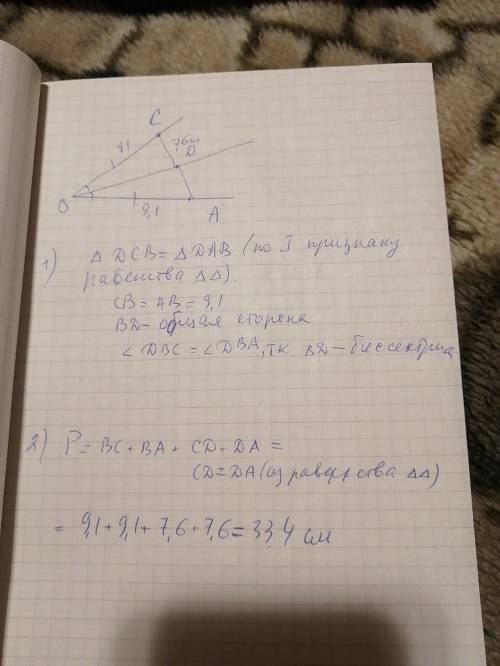 C
9,1
7,6 см
D
B
9,1
A
1) Δ DCB = Δ DAB (по I признаку
равенства ΔΔ)
CB = AB = 9,1
BD - общая сторона
∠ DBC = ∠ DBA, т.к. BD - биссектриса
2) P = BC + BA + CD + DA =
CD = DA (из равенства ΔΔ)
= 9,1 + 9,1 + 7,6 + 7,6 = 33,4 см